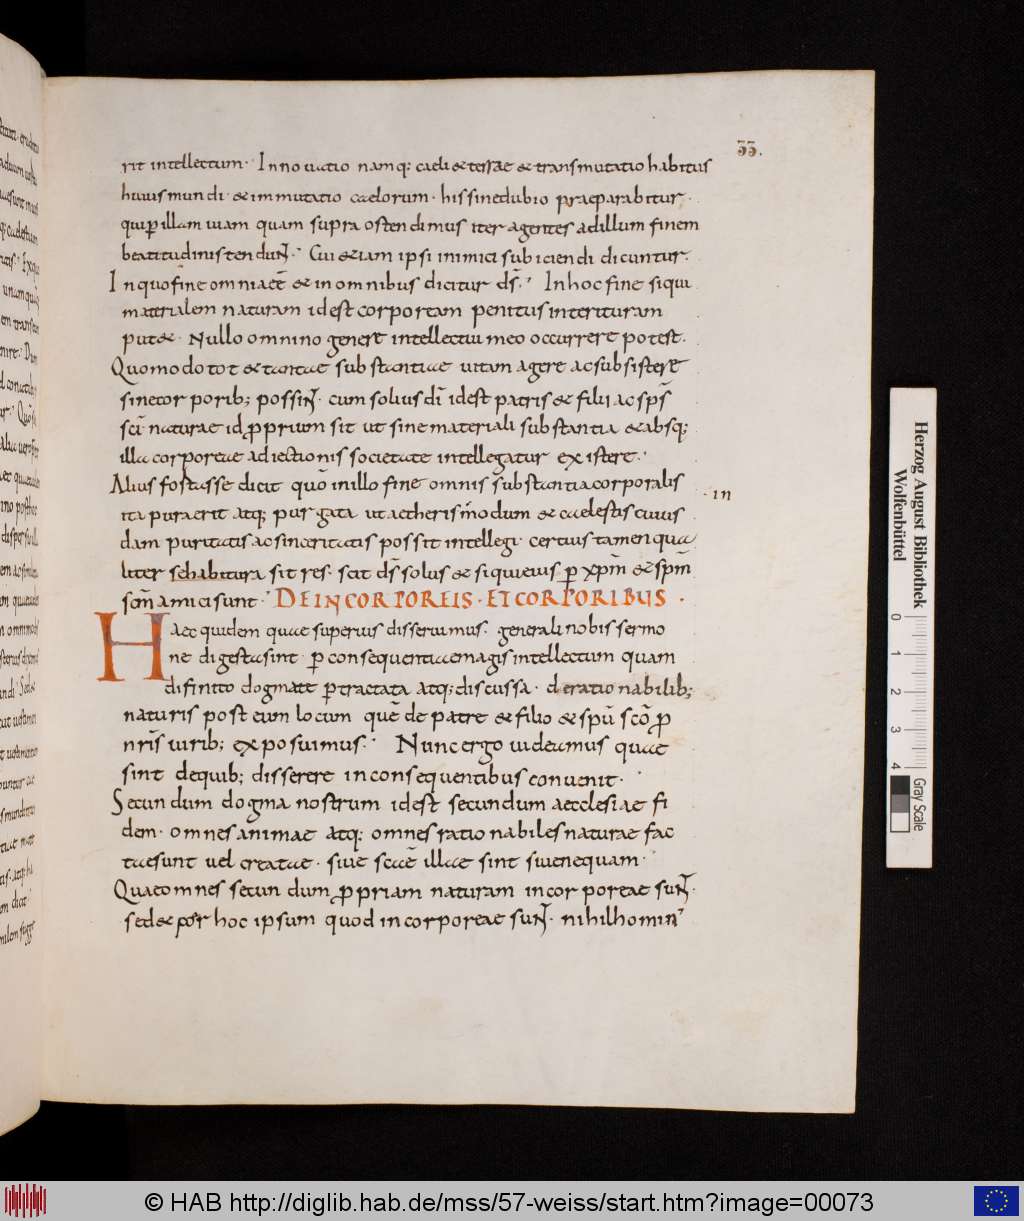 33.
rit intellectum. Innouatio namq; caeli & terrae & transmutatio habitus
huius mundi. & immutatio caelorum. his sine dubio praeparabitur.
qui ꝑ illam uiam quam supra ostendimus iter agentes ad illum finem
beatitudinis tendunt. Cui & iam ipsi inimici subiciendi dicuntur.
In quo fine omnia eē & in omnibus dicitur d̄s. In hoc fine siqui
materialem naturam id est corpoream penitus interituram
put&. Nullo omnino genere intellectui meo occurrere potest.
Quomodo tot & tantae substantiae uitam agere ac subsistere
sine corporib; possint. cum solius d̄i id est patris & filii ac sp̄s
sc̄i naturae id ꝓprium sit ut sine materiali substantia & absq;
illa corporeae adiectionis societate intellegatur existere.
Alius fortasse dicit quō in illo fine omnis substantia corporalis
in
ita pura erit atq; purgata ut aetheris modum & caelestis cuius
dam puritatis ac sinceritatis possit intellegi. certius tamen qua
liter se habitura sit res. scit d̄s solus & siqui eius ꝑ xp̄m & sp̄m
sc̄m amici sunt. DE INCORPOREIS. ET CORPORIBUS.
Haec quidem quae superius disseruimus. generali nobis sermo
ne digesta sint. ꝑ consequentiae magis intellectum quam
difinito dogmate ꝑtractata atq; discussa. de rationabilib;
naturis post eum locum quē de patre & filio & spū scō ꝓ
nr̄is uirib; exposuimus. Nunc ergo uideamus quae
sint de quib; disserere in consequentibus conuenit.
Secundum dogma nostrum id est secundum aecclesiae fi
dem. omnes animae atq; omnes rationabiles naturae fac
tae sunt uel creatae. siue scāe illae sint siue nequam.
Quae omnes secundum ꝓpriam naturam incorporeae sunt.
sed & ꝑ hoc ipsum quod incorporeae sunt. nihilhomin'
Herzog August Bibliothek
Wolfenbüttel
0 1 2 3 4
Gray Scale
© HAB http://diglib.hab.de/mss/57-weiss/start.htm?image=00073